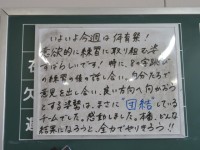 いよいよ今週は何育祭!
意欲的に練習に取り組む姿
すばらしいです! 特に、
の練習の後の話し合い。自分たちで
意見を出し合い、良い方向へ向かおう
とする姿勢は、まさに"団結"している
チームでした。感動しました。本番、どんな
結果になろうと、全力でやりきろう!!
欠